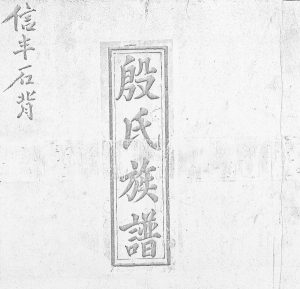 信半石背
殷氏族譜